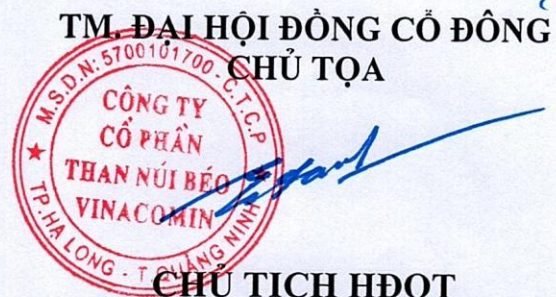 TM. ĐẠI HỘI ĐỒNG CỔ ĐÔNG
CHỦ TỌA
M.S.D.N: 5700101700 - C.T.C.P
CÔNG TY
CỔ PHẦN
THAN NÚI BÉO
VINACOMIN
TP. HẠ LONG - T. QUẢNG NINH
CHỦ TỊCH HĐQT